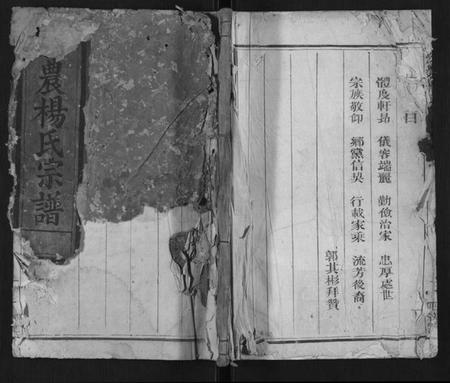 農楊氏宗譜
曰
體度軒昂　儀容端麗　勤儉治家　忠厚處世
宗族敬仰　鄉黨信吳　行載家乘　流芳後裔
郭其彬拜贊